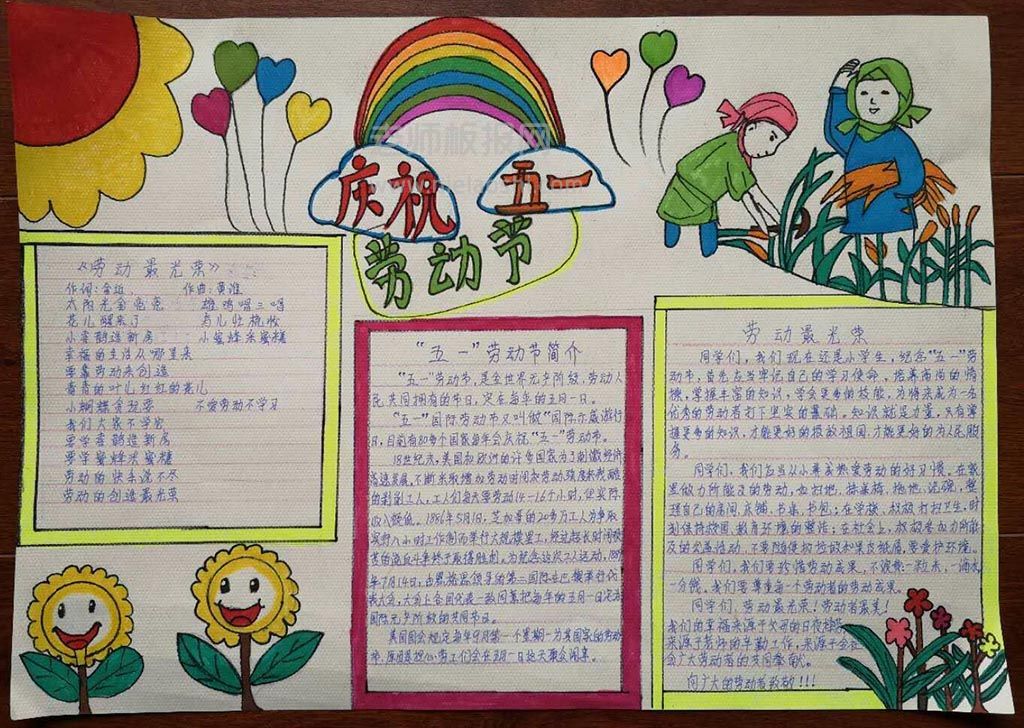 庆祝五一
劳动节
《劳动最光荣》
作词:金近 作曲:黄准
太阳光金亮亮 雄鸡唱三唱
花儿醒来了 鸟儿忙梳妆
小喜鹊造新房 小蜜蜂采蜜糖
幸福的生活从哪里来
要靠劳动来创造
青青的叶儿红红的花儿
小蝴蝶贪玩耍 不爱劳动不学习
我们大家不学它
要学喜鹊造新房
要学蜜蜂采蜜糖
劳动的快乐说不尽
劳动的创造最光荣
“五一”劳动节简介
“五一”劳动节,是全世界无产阶级,劳动人
民共同拥有的节日,定在每年的五月一日。
“五一”国际劳动节又叫做“国际示威游行
日,目前有80多个国家每年会庆祝“五一”劳动节。
18世纪末,美国和欧洲的许多国家为了刺激经济
高速发展,不断采取增加劳动时间和劳动强度来残酷
的剥削工人,工人们每天要劳动14-16个小时,但实际
收入极低。1886年5月1日,芝加哥的20多万工人为争取
实行八小时工作制而举行大规模罢工,经过超长时间艰
苦的流血斗争终于取得胜利,为纪念这次工人运动,1889
年7月14日,由恩格斯领导的第二国际在巴黎举行代
表大会,大会上各国代表一致同意把每年的五月一日定为
国际无产阶级的共同节日。
美国国会规定每年9月第一个星期一为其国家的劳动
会在五月一日这天聚会闹享。
劳动最光荣
同学们,我们现在还是小学生,纪念“五一”劳
动节,首先应当牢记自己的学习使命,培养高尚的情
操,掌握丰富的知识,学会更多的技能,为将来成为一名
优秀的劳动者打下坚实的基础。知识就是力量,只有掌
握更多的知识,才能更好的报效祖国,才能更好的为人民服
务。
同学们,我们应当从小养成热爱劳动的好习惯。在家
里做力所能及的劳动,如扫地、擦桌椅、拖地、洗碗,整
理自己的房间、床铺、书桌、书包;在学校,积极打扫卫生,时
刻保持校园、教育环境的整洁;在社会上,积极参加力所能
及的公益活动,不要随便扔垃圾和果皮纸屑,要爱护环境。
同学们,我们要珍惜劳动成果,不浪费一粒米、一滴水
一分钱。我们要尊重每一个劳动者的劳动成果。
同学们,劳动最光荣!劳动者最美!
我们的幸福来源于父母的日夜操劳
来源于老师的辛勤工作,来源于全社
会广大劳动者的共同奉献。
向广大的劳动者致敬!!!
老师板报网